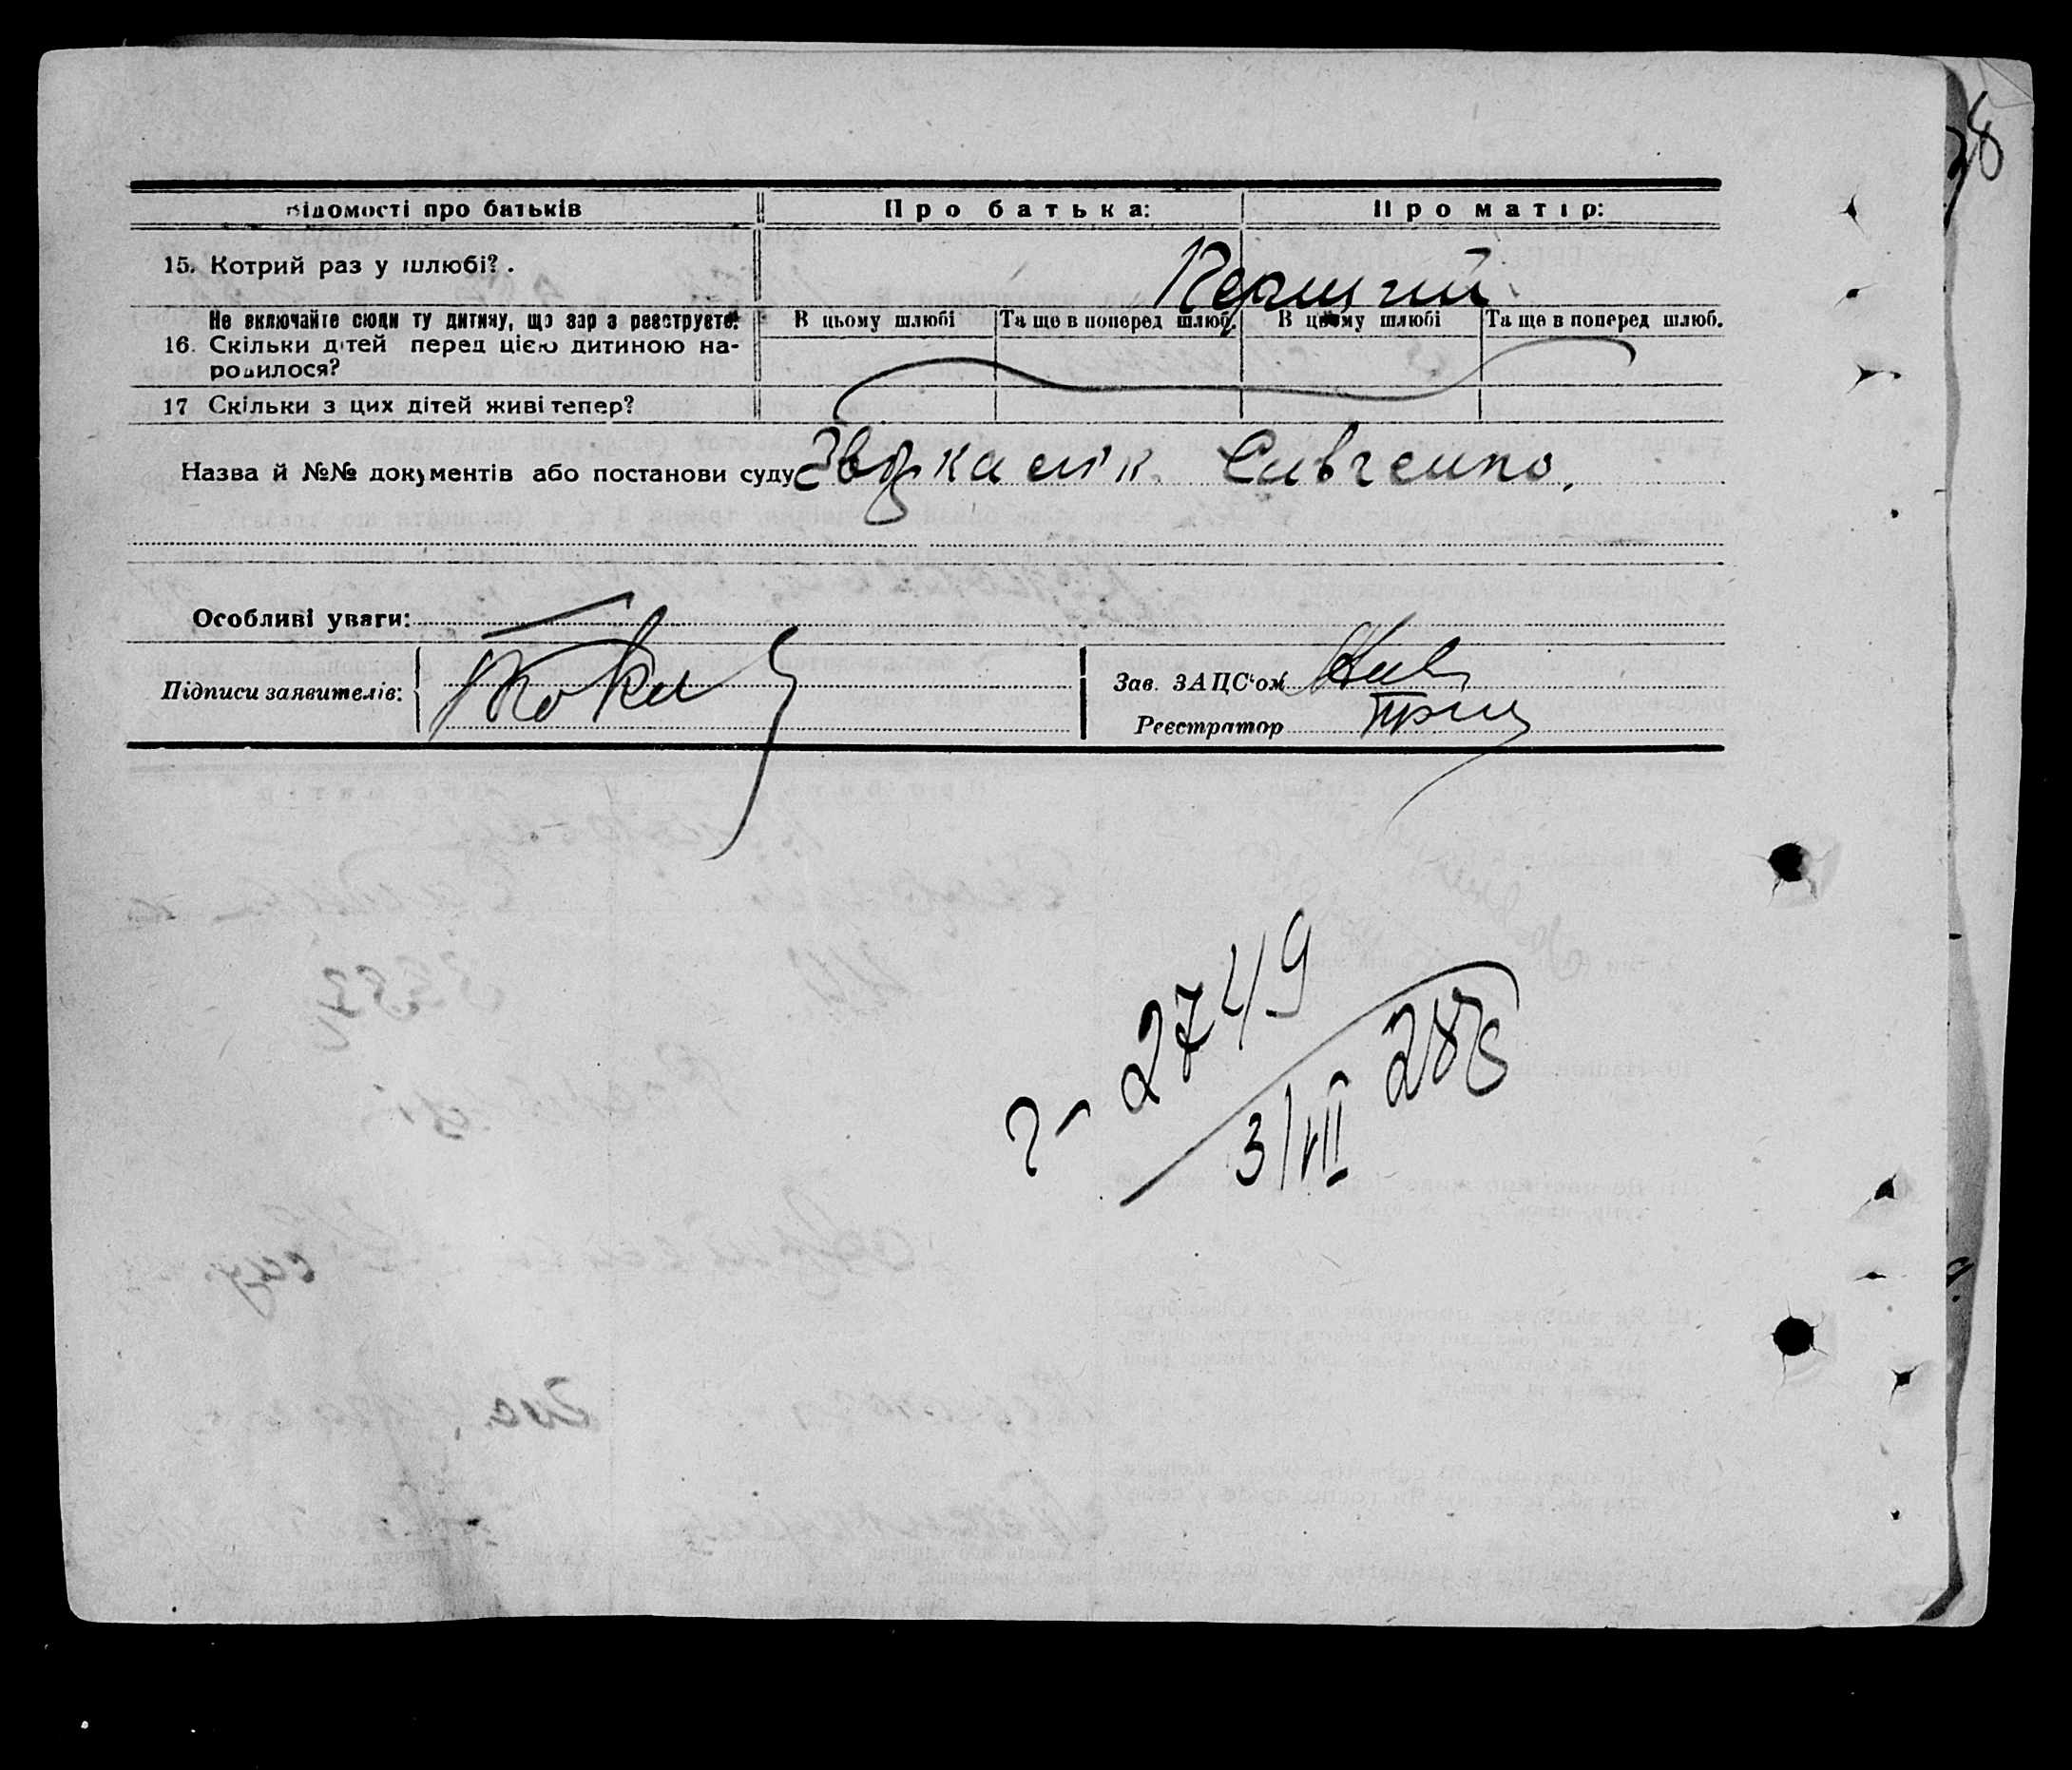 Відомості про батьків Про батька: Про матір:
15. Котрий раз у шлюбі? . Перший
Не включайте сюди ту дитину, що зараз реєструєте. В цьому шлюбі Та ще в поперед шлюб. В цьому шлюбі Та ще в поперед шлюб.
16. Скільки дітей перед цією дитиною на-
родилося?
17 Скільки з цих дітей живі тепер?
Назва й №№ документів або постанови суду Савченко.
Особливі уваги:
Підписи заявителів:
Зав. ЗАЦС'ом
Реєстратор
2749
3/VII 28